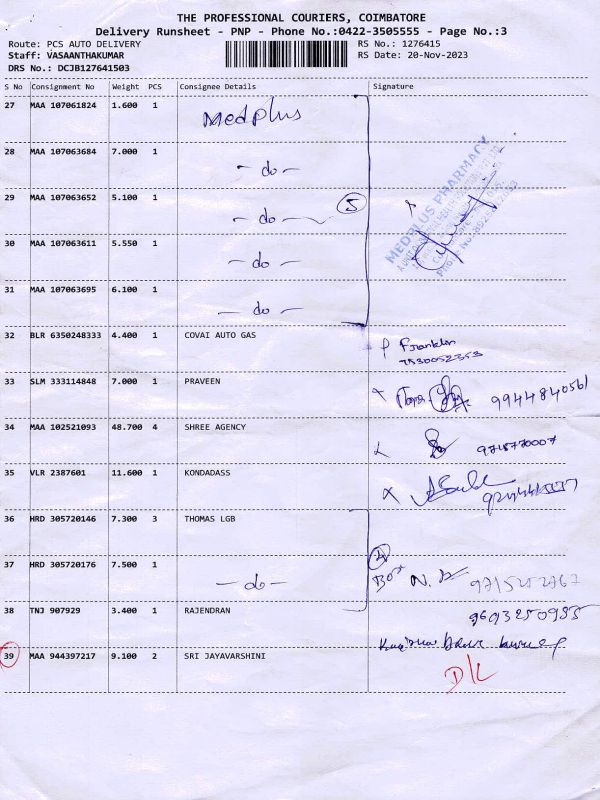 THE PROFESSIONAL COURIERS, COIMBATORE
Delivery Runsheet - PNP - Phone No.:0422-3505555 - Page No.:3
Route: PCS AUTO DELIVERY RS No.: 1276415
Staff: VASAANTHAKUMAR RS Date: 20-Nov-2023
DRS No.: DCJB127641503
S No Consignment No Weight PCS Consignee Details Signature
27 MAA 107061824 1.600 1 Medplus
28 MAA 107063684 7.000 1 - do -
29 MAA 107063652 5.100 1 - do - 5
MEDPLUS PHARMACY
30 MAA 107063611 5.550 1 - do -
31 MAA 107063695 6.100 1 - do -
32 BLR 6350248333 4.400 1 COVAI AUTO GAS Franklin
7530052353
33 SLM 333114848 7.000 1 PRAVEEN 9944840561
34 MAA 102521093 48.700 4 SHREE AGENCY 9715770007
35 VLR 2387601 11.600 1 KONDADASS
36 HRD 305720146 7.300 3 THOMAS LGB
37 HRD 305720176 7.500 1 - do - 4 Box
38 TNJ 907929 3.400 1 RAJENDRAN
39 MAA 944397217 9.100 2 SRI JAYAVARSHINI
D/L